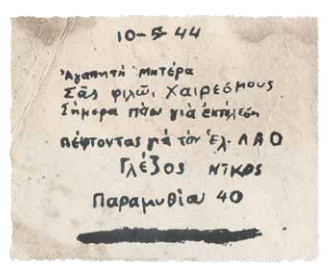 10-5 44
Ἀγαπητή μητέρα
Σᾶς φιλῶ. Χαιρεσμους
Σήμερα πάω γιά ἐκτέλεση
πέφτοντας γιά τόν Ἑλ. ΛΑΟ
Γλέζος Νῖκος
Παραμυθίας 40